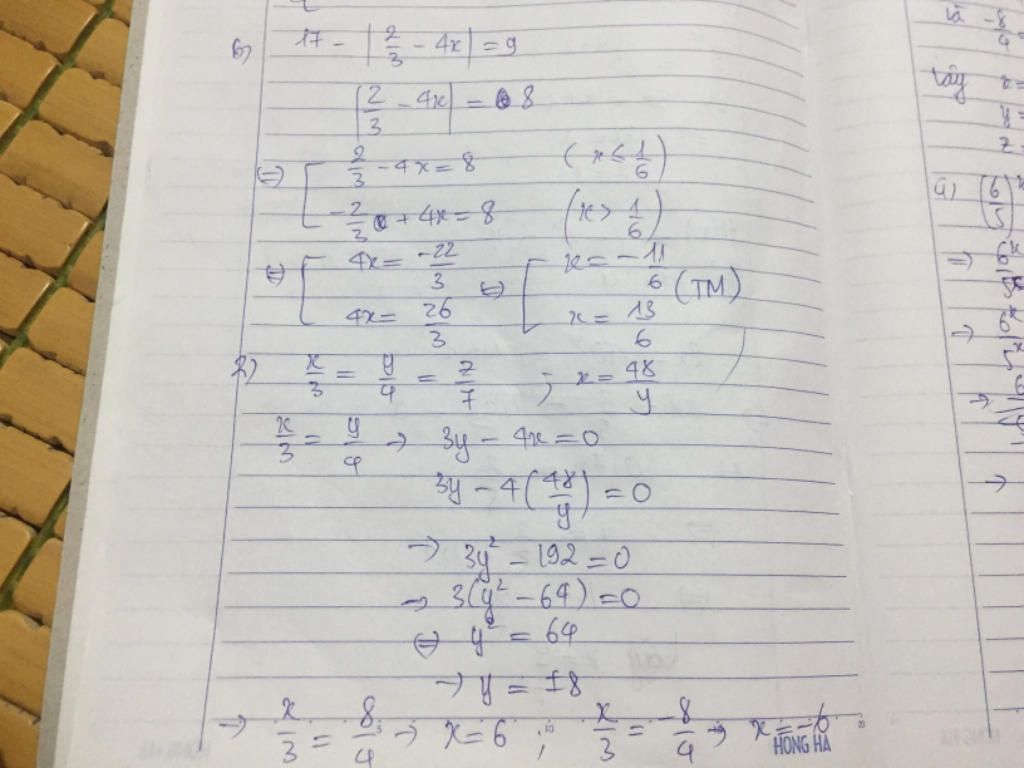 b) 17 - |2/3 - 4x| = 9
|2/3 - 4x| = 8
(=) [ 2/3 - 4x = 8 (x ≤ 1/6)
-2/3 + 4x = 8 (x > 1/6)
⇔ [ 4x = -22/3 ⇔ [ x = -11/6 (TM)
4x = 26/3 x = 13/6
2) x/3 = y/4 = z/7 ; x = 48/y
x/3 = y/4 → 3y - 4x = 0
3y - 4(48/y) = 0
→ 3y² - 192 = 0
→ 3(y² - 64) = 0
⇔ y² = 64
→ y = ±8
→ x/3 = 8/4 → x = 6 ; x/3 = -8/4 → x = -6
HONG HA
là -8/4
Vậy x =
y =
z =
a) (6/5)
⇒ 6^x
→ 6^x/5^x